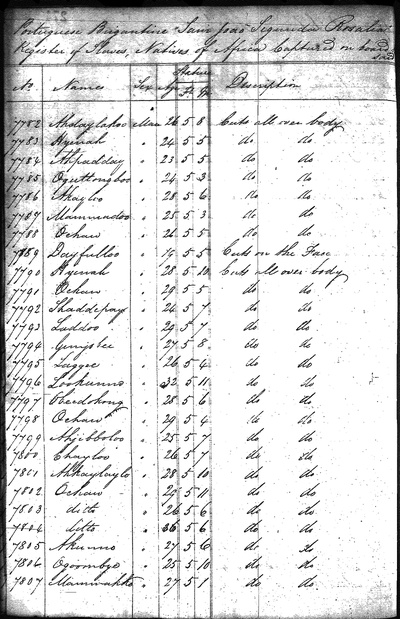 Portuguese Brigantine San Joao Segunda Rosalia
Register of Slaves, Natives of Africa Captured on board
said
Stature
No Names Sex Age Ft In Description
7782 Man 26 5 8 Cuts all over body
7783 24 5 5 do do
7784 23 5 5 do do
7785 24 5 3 do do
7786 28 5 6 do do
7787 25 5 3 do do
7788 Ochaw 26 5 5 do do
7789 Dayfulloo 19 5 5 Cuts on the Face
7790 28 5 10 Cuts all over body
7791 Ochaw 29 5 5 do do
7792 Shaddepay 24 5 7 do do
7793 Laddoo 29 5 7 do do
7794 27 5 8 do do
7795 Laggee 26 5 4 do do
7796 32 5 11 do do
7797 28 5 6 do do
7798 Ochaw 29 5 4 do do
7799 Ahjibboloo 25 5 7 do do
7800 Chayloo 26 5 7 do do
7801 Ahkaylaylo 28 5 10 do do
7802 Ochaw 29 5 11 do do
7803 ditto 26 5 6 do do
7804 ditto 36 5 6 do do
7805 Akunno 27 5 6 do do
7806 25 5 10 do do
7807 27 5 1 do do